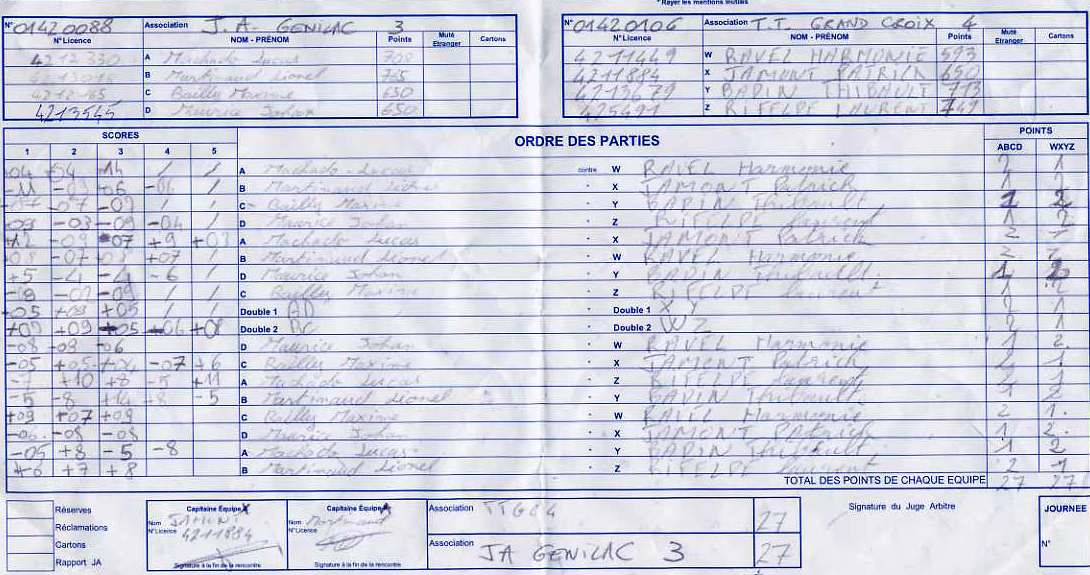 * Rayer les mentions inutiles
N° 01420088 Association J.A. GENILAC 3
N° Licence NOM - PRÉNOM Points Muté Etranger Cartons
4212330 A Machado Lucas 708
B Martinaud Lionel 765
C Bailly Maxime 630
4213545 D Maurice Johan 650
N° 01420106 Association T.T. GRAND CROIX 4
N° Licence NOM - PRÉNOM Points Muté Etranger Cartons
4211449 W RAVEL HARMONIE 593
4211884 X JAMONT PATRICK 650
4213679 Y BADIN THIBAULT 713
425491 Z RIFELDE LAURENT 749
SCORES ORDRE DES PARTIES POINTS
1 2 3 4 5 ABCD WXYZ
A Machado Lucas contre W RAVEL Harmonie 2 1
B Martinaud X JAMONT Patrick 1 2
C Bailly Maxime Y BADIN Thibault 1 2
-09 -03 -09 -04 / D Maurice Johan Z RIFELDE Laurent 1 2
+12 -09 +9 +03 A Machado Lucas X JAMONT Patrick 2
-07 +07 / B Martinaud Lionel W RAVEL Harmonie 2
+5 -4 -4 -6 / D Maurice Johan Y BADIN Thibault 1 2
C Bailly Maxime Z RIFELDE Laurent 1 2
-05 +09 +05 / / Double 1 AD Double 1 XY 2 1
+09 +09 +05 +06 +08 Double 2 BC Double 2 WZ 2 1
-08 -09 -06 D Maurice Johan W RAVEL Harmonie 1 2
-05 +05 -07 +6 C Bailly Maxime X JAMONT Patrick 2 1
-7 +10 +8 -5 +11 A Machado Lucas Z RIFELDE Laurent 2 1
-5 -8 +14 -8 -5 B Martinaud Lionel Y BADIN Thibault 1 2
+09 +07 +09 C Bailly Maxime W RAVEL Harmonie 2 1
-06 -08 -08 D Maurice Johan X JAMONT Patrick 1 2
-05 +8 -5 -8 A Machado Lucas Y BADIN Thibault 1 2
+6 +7 +8 B Martinaud Lionel Z RIFELDE Laurent 2 1
TOTAL DES POINTS DE CHAQUE EQUIPE 27 27
Réserves
Réclamations
Cartons
Rapport JA
Capitaine Équipe X
Nom JAMONT
N° Licence 4211884
Signature à la fin de la rencontre
Capitaine Équipe A
Nom Martinaud
N° Licence
Signature à la fin de la rencontre
Association TTGC4 27
Association JA GENILAC 3 27
Signature du Juge Arbitre
JOURNEE
N°